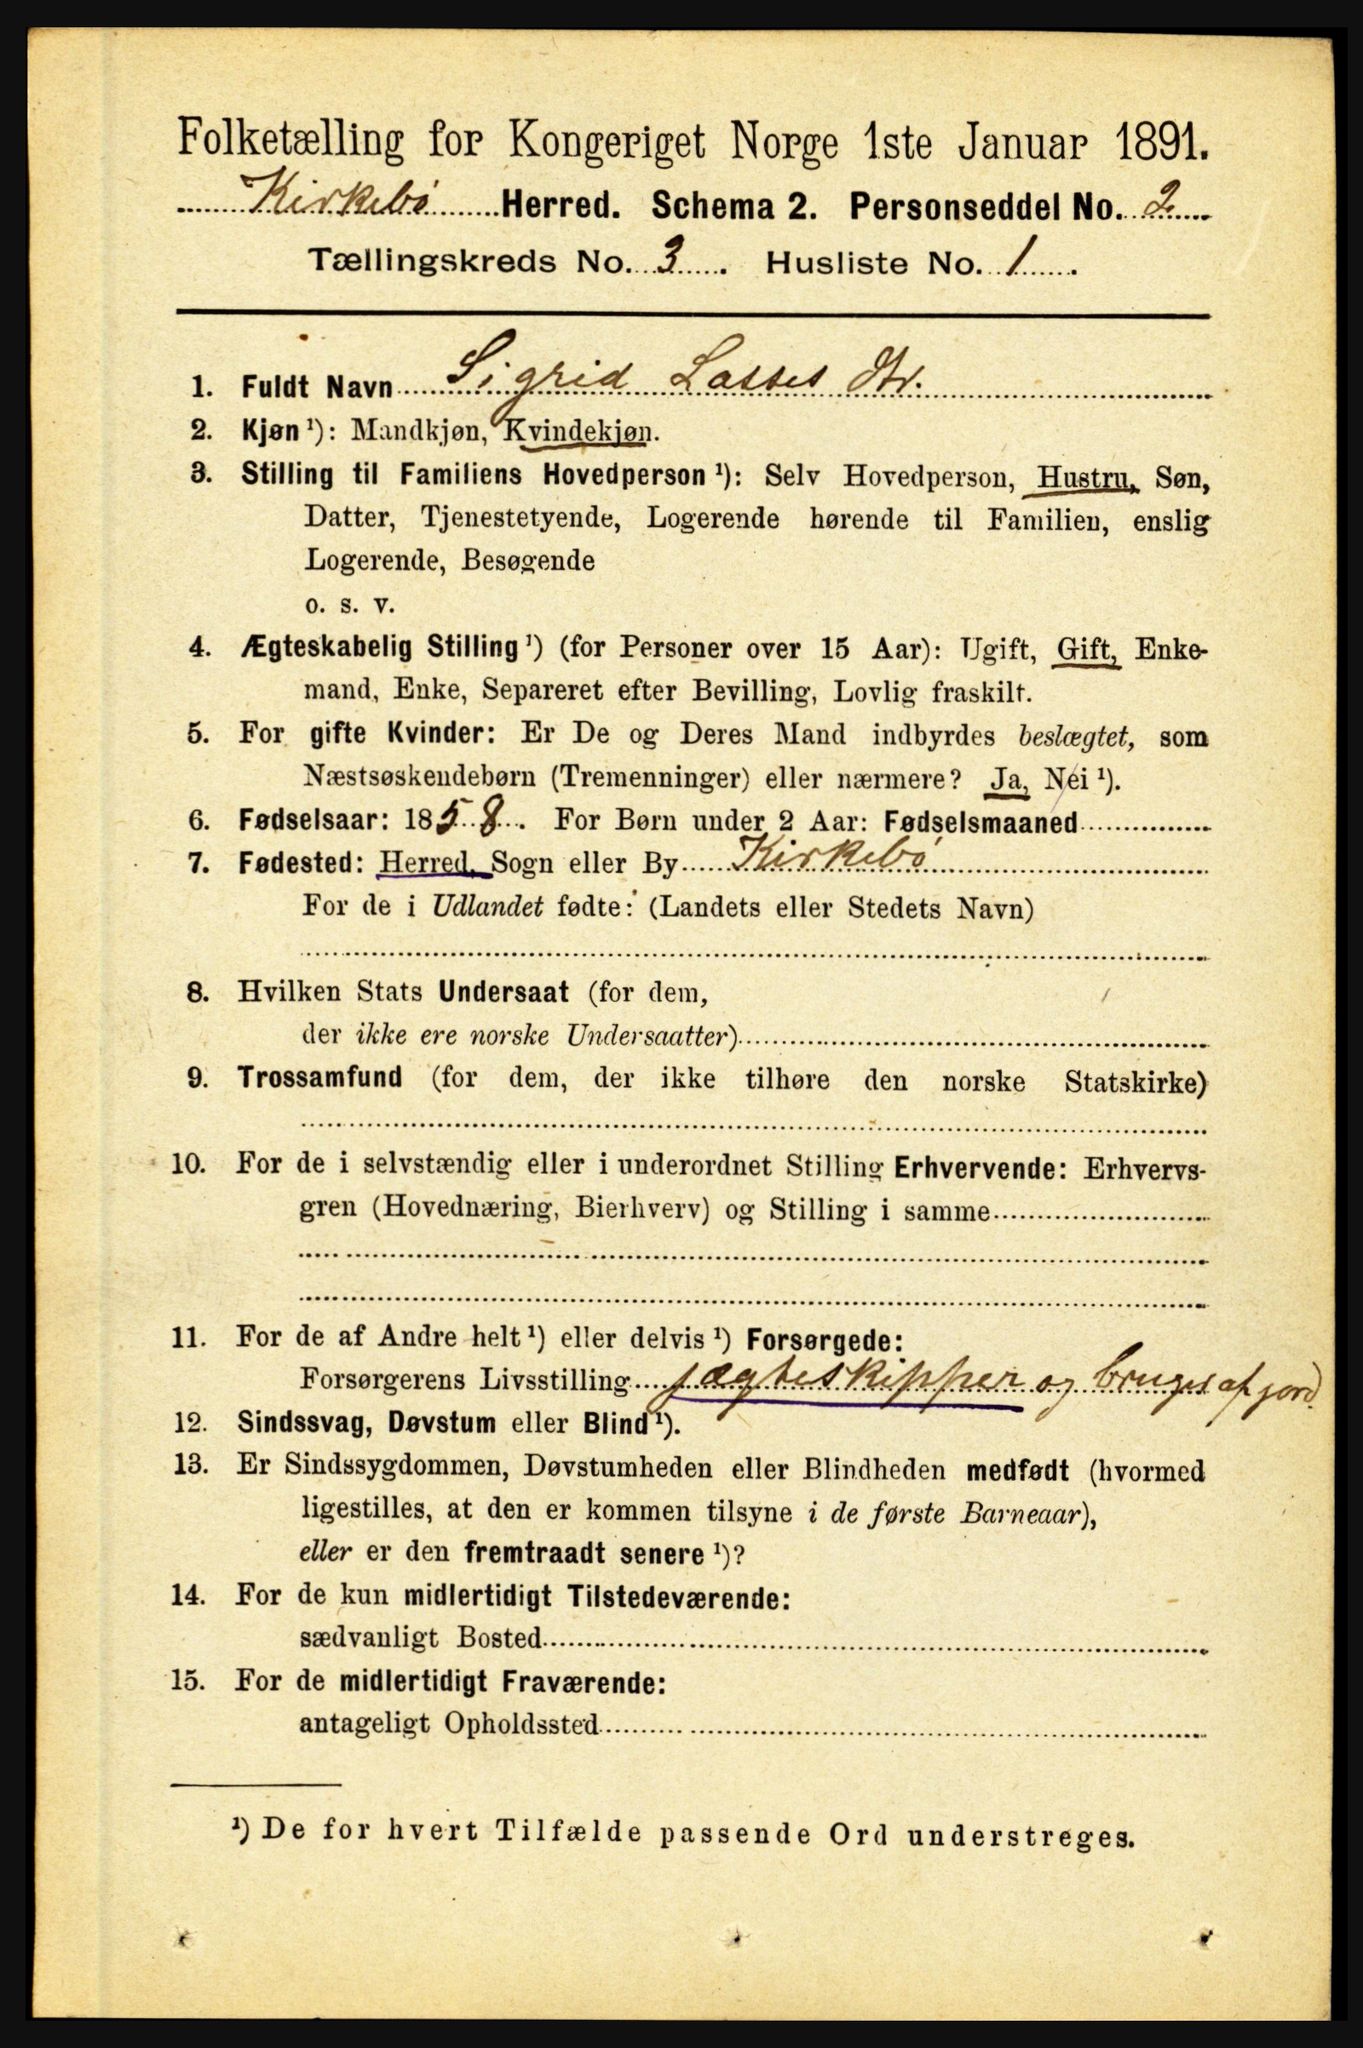 Folketælling for Kongeriget Norge 1ste Januar 1891.
Kirkebö Herred. Schema 2. Personseddel No. 2
Tællingskreds No. 3. Husliste No. 1.
1. Fuldt Navn Sigrid Lasses Dtr.
2. Kjøn ¹): Mandkjøn, Kvindekjøn.
3. Stilling til Familiens Hovedperson ¹): Selv Hovedperson, Hustru, Søn,
Datter, Tjenestetyende, Logerende hørende til Familien, enslig
Logerende, Besøgende
o. s. v.
4. Ægteskabelig Stilling ¹) (for Personer over 15 Aar): Ugift, Gift, Enke-
mand, Enke, Separeret efter Bevilling, Lovlig fraskilt.
5. For gifte Kvinder: Er De og Deres Mand indbyrdes beslægtet, som
Næstsøskendebørn (Tremenninger) eller nærmere? Ja, Nei ¹).
6. Fødselsaar: 1858. For Børn under 2 Aar: Fødselsmaaned
7. Fødested: Herred, Sogn eller By Kirkebö
For de i Udlandet fødte: (Landets eller Stedets Navn)
8. Hvilken Stats Undersaat (for dem,
der ikke ere norske Undersaatter)
9. Trossamfund (for dem, der ikke tilhøre den norske Statskirke)
10. For de i selvstændig eller i underordnet Stilling Erhvervende: Erhvervs-
gren (Hovednæring, Bierhverv) og Stilling i samme
11. For de af Andre helt ¹) eller delvis ¹) Forsørgede:
Forsørgerens Livsstilling jægteskipper og bruger af jord.
12. Sindssvag, Døvstum eller Blind ¹).
13. Er Sindssygdommen, Døvstumheden eller Blindheden medfødt (hvormed
ligestilles, at den er kommen tilsyne i de første Barneaar),
eller er den fremtraadt senere ¹)?
14. For de kun midlertidigt Tilstedeværende:
sædvanligt Bosted
15. For de midlertidigt Fraværende:
antageligt Opholdssted
¹) De for hvert Tilfælde passende Ord understreges.